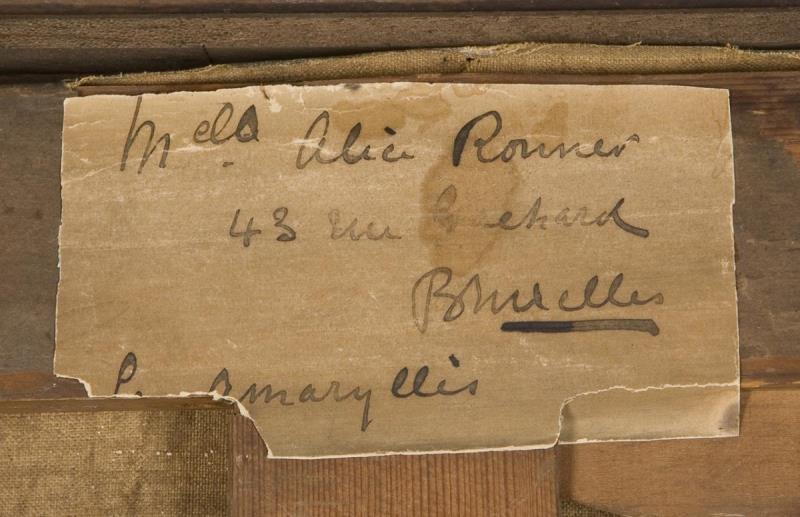 Melle Alice Ronner
43 rue
Bruxelles
Amaryllis